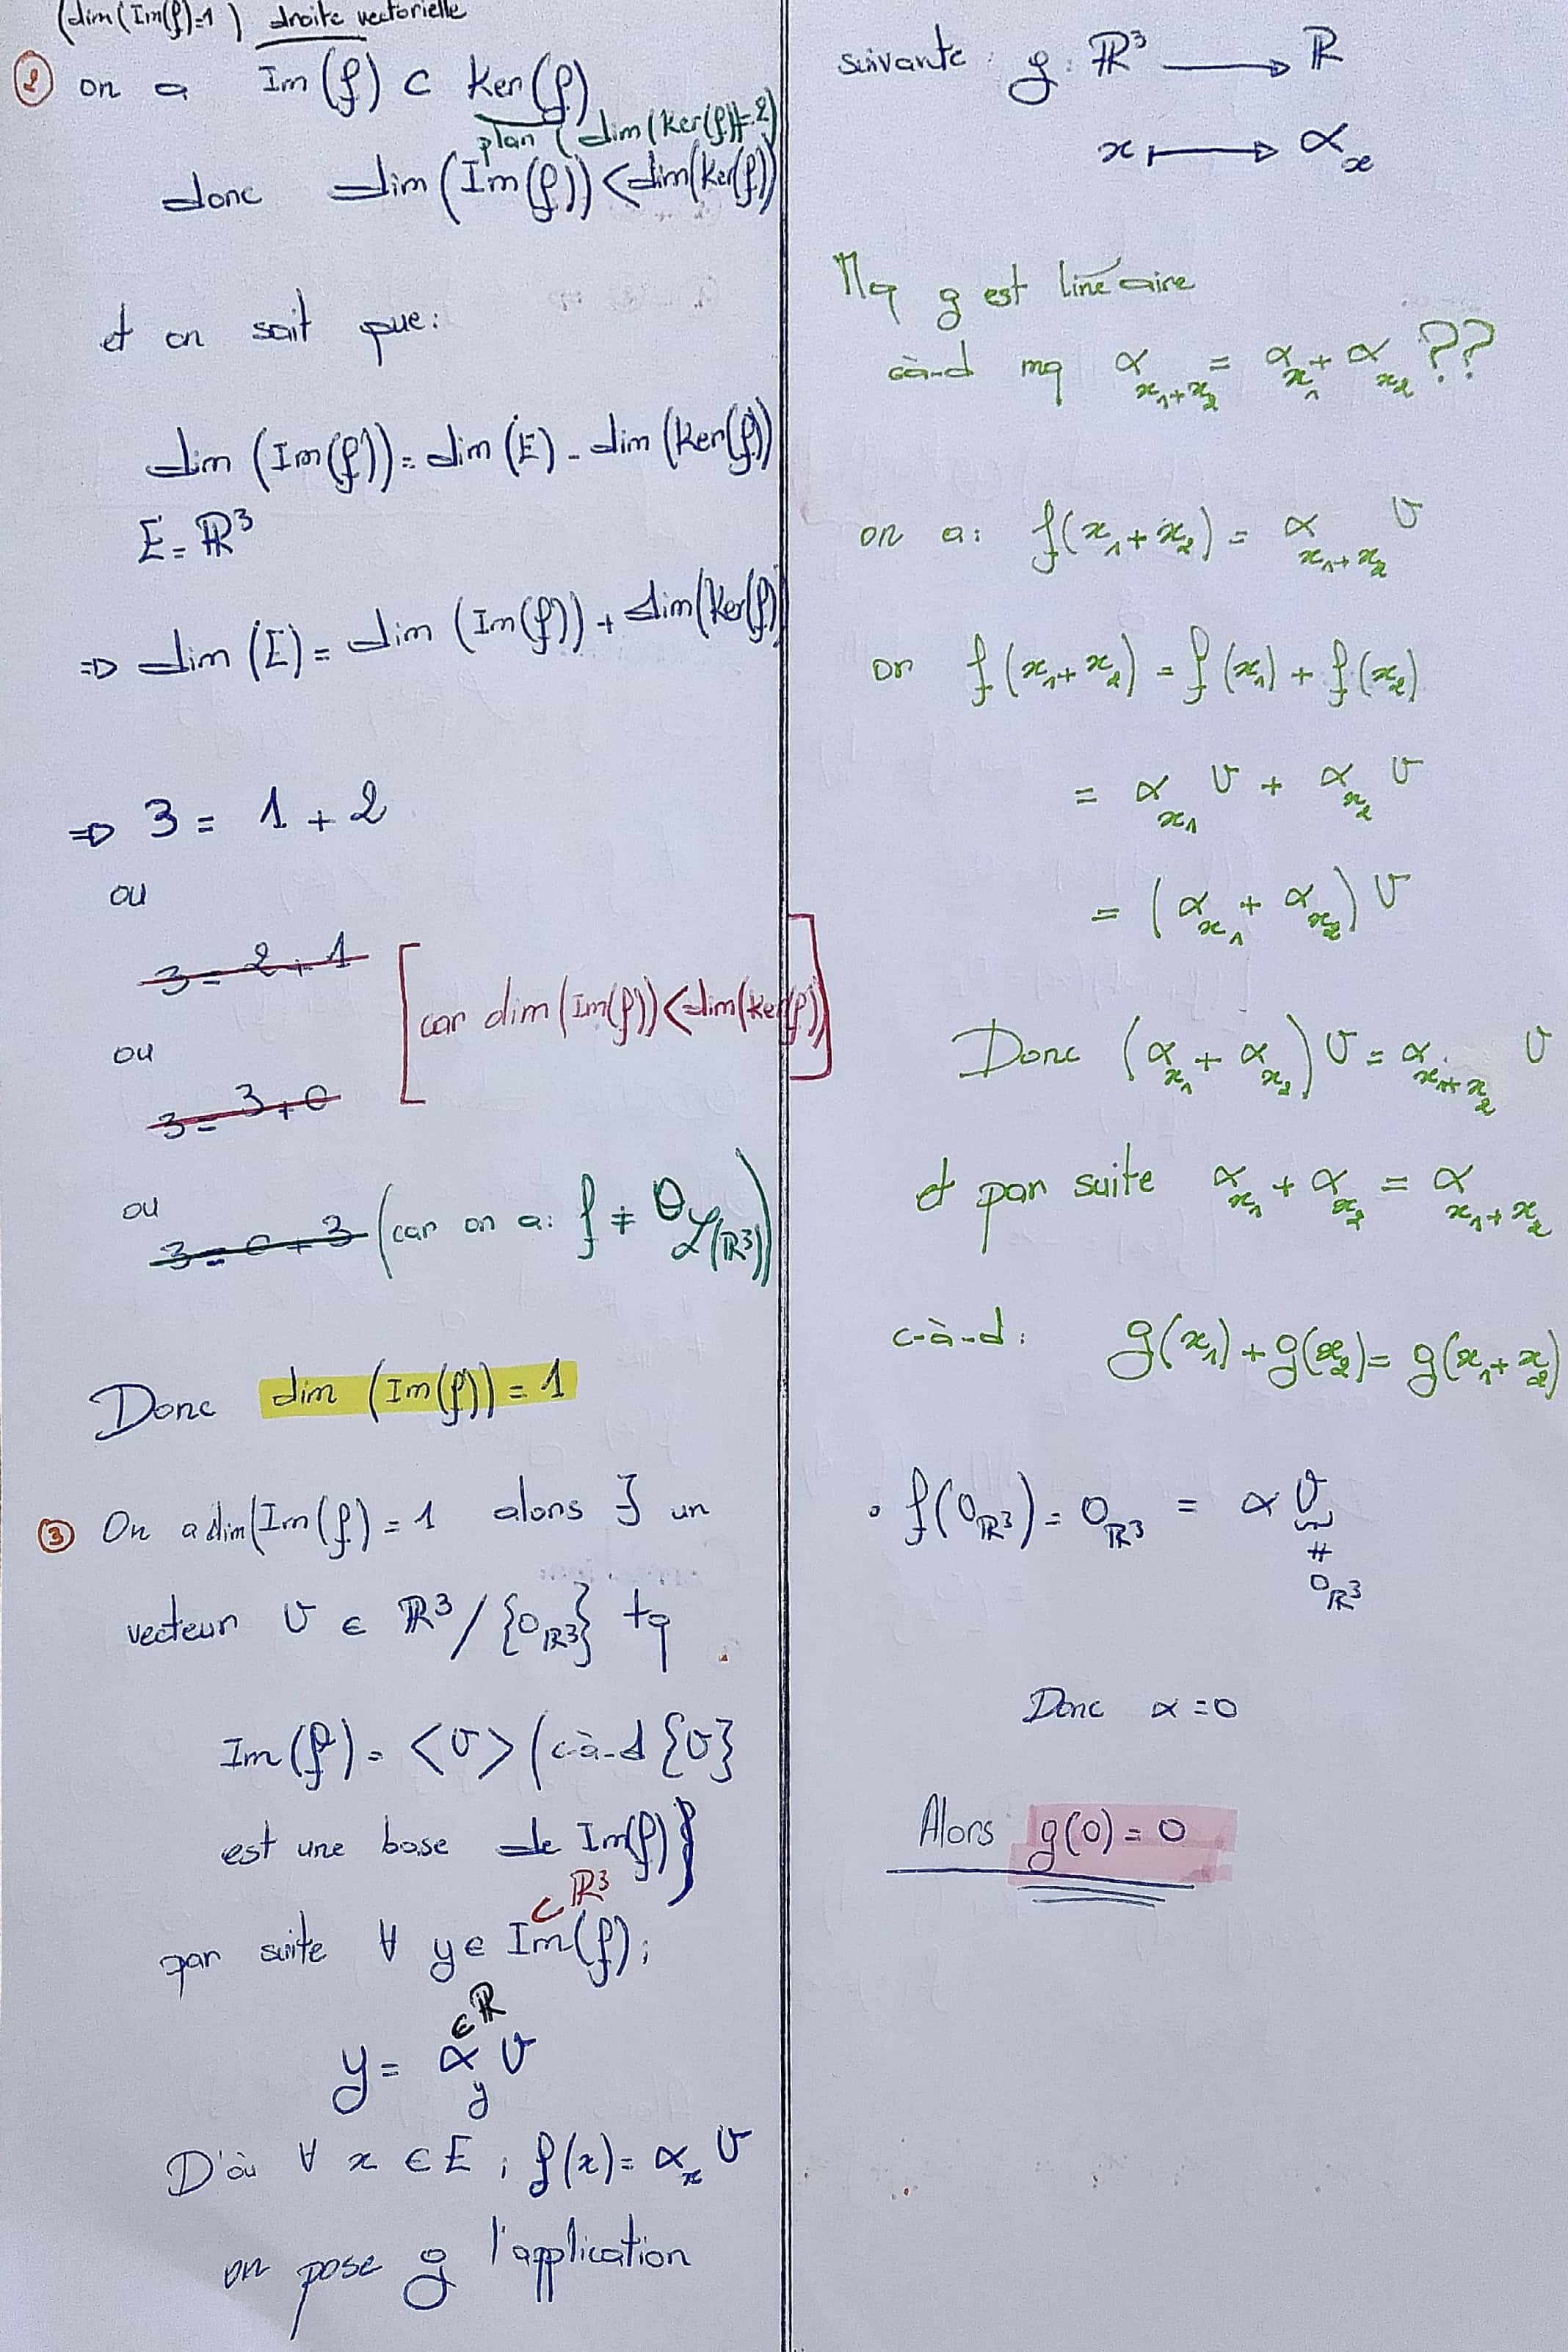 (dim(Im(f))=1) droite vectorielle
② on a Im(f) ⊂ Ker(f)
plan (dim(Ker(f))=2)
donc dim(Im(f)) < dim(Ker(f))
et on sait que:
dim (Im(f)) = dim (E) - dim (Ker(f))
E = ℝ³
⇒ dim (E) = dim (Im(f)) + dim(Ker(f))
⇒ 3 = 1 + 2
ou
3 = 2 + 1
[car dim(Im(f)) < dim(Ker(f))]
ou
3 = 3 + 0
ou
3 = 0 + 3 (car on a: f ≠ θ_ℒ(ℝ³))
Donc dim (Im(f)) = 1
③ On a dim(Im(f)) = 1 alors ∃ un
vecteur v ∈ ℝ³/{0_ℝ³} tq
Im(f) = <v> (c-à-d {v}
est une base de Im(f))
⊂ ℝ³
par suite ∀ y ∈ Im(f);
∈ ℝ
y = α_y v
D'où ∀ x ∈ E ; f(x) = α_x v
on pose g l'application
suivante : g : ℝ³ ⟶ ℝ
x ⟼ α_x
Mq g est linéaire
càd mq α_{x₁+x₂} = α_{x₁} + α_{x₂} ??
on a: f(x₁+x₂) = α_{x₁+x₂} v
or f(x₁+x₂) = f(x₁) + f(x₂)
= α_{x₁} v + α_{x₂} v
= (α_{x₁} + α_{x₂}) v
Donc (α_{x₁} + α_{x₂}) v = α_{x₁+x₂} v
et par suite α_{x₁} + α_{x₂} = α_{x₁+x₂}
c-à-d: g(x₁) + g(x₂) = g(x₁+x₂)
• f(0_ℝ³) = 0_ℝ³ = α v
≠
0_ℝ³
Donc α = 0
Alors g(0) = 0